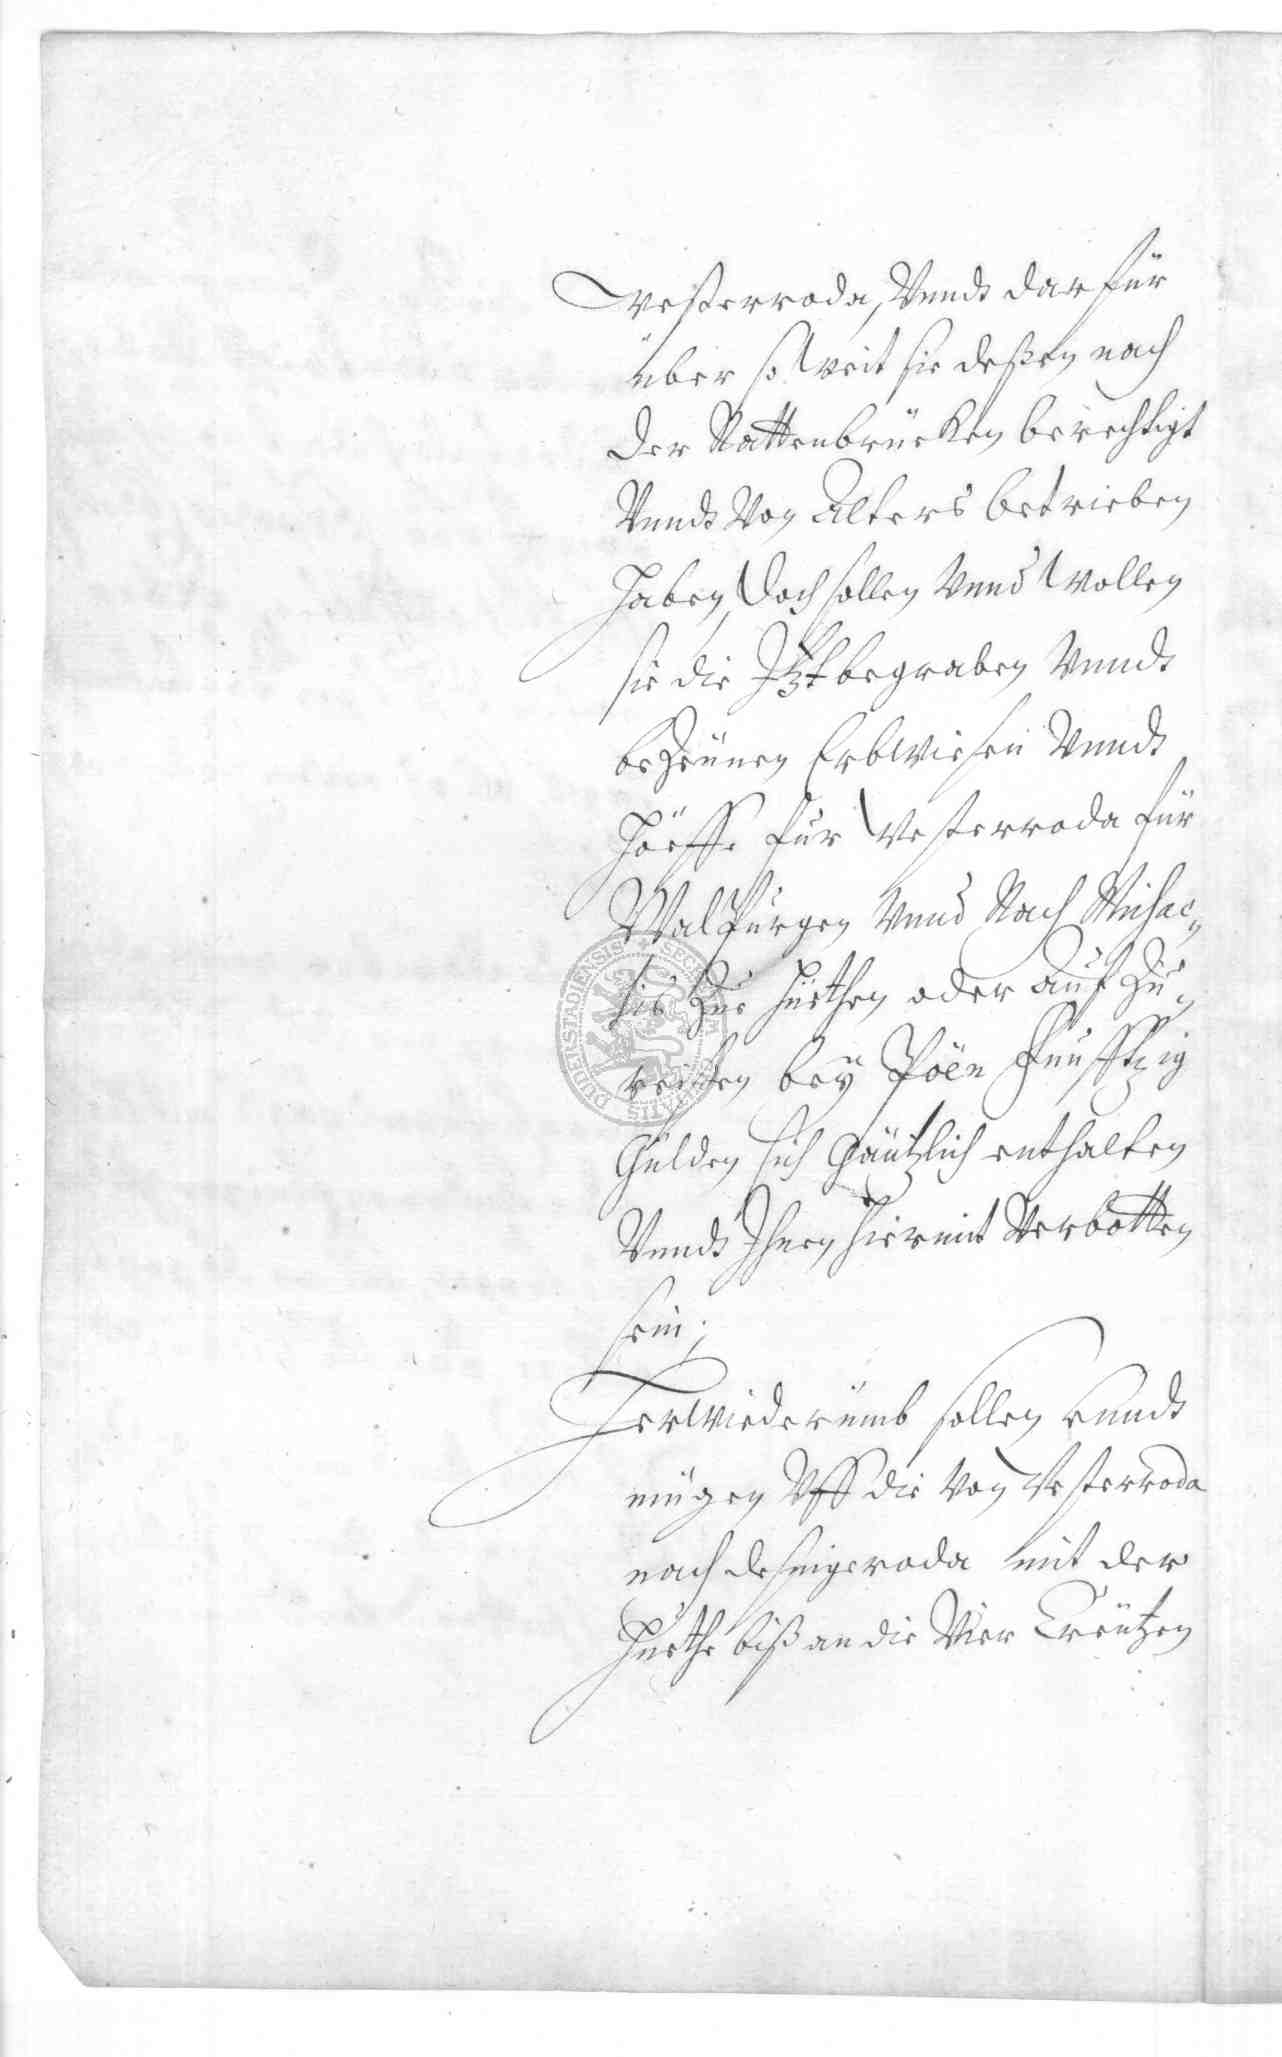 Westerroda, Vnndt darfür
über so weit sie deßen nach
der Rattenbrücken berechtigt
Vnndt Von Alters betrieben
haben, Doch sollen Vnnd wollen
sie die Jtzt begraben Vnndt
beZeünen Erbwiesen Vnndt
Höeffe für Westerroda für
Walpurgen Vnnd Nach Michae„
lis Zue hüethen oder auf Zu„
reiben bey Pöen Funfftzig
Gülden sich gäntzlich enthalten
Vnndt Jhnen hiermit Verbotten
sein;
Herwiederümb sollen Vnndt
mügen Vff die Von Westerroda
nach desingeroda mit der
Huethe biß an die Vier Creützen
DUDERSTADIENSIS ✶ SECRETVM CIVITATIS